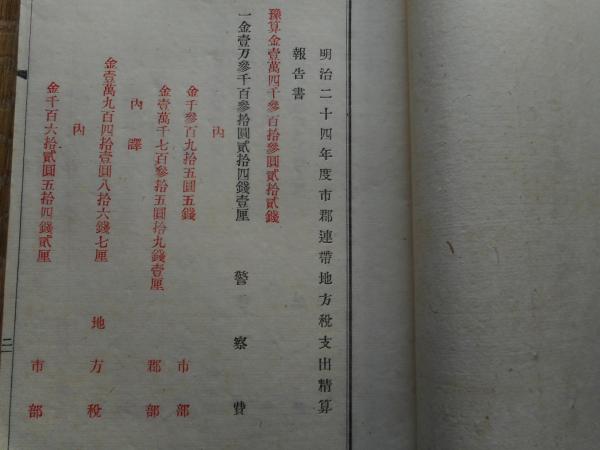 明治二十四年度市郡連帶地方稅支出精算
報告書
豫算金壹萬四千參百拾參圓貳拾貳錢
一金壹万參千百參拾圓貳拾四錢壹厘 警察費
內
金千參百九拾五圓五錢 市部
金壹萬千七百參拾五圓拾九錢壹厘 郡部
內譯
金壹萬九百四拾壹圓八拾六錢七厘 地方稅
內
金千百六拾貳圓五拾四錢貳厘 市部
二